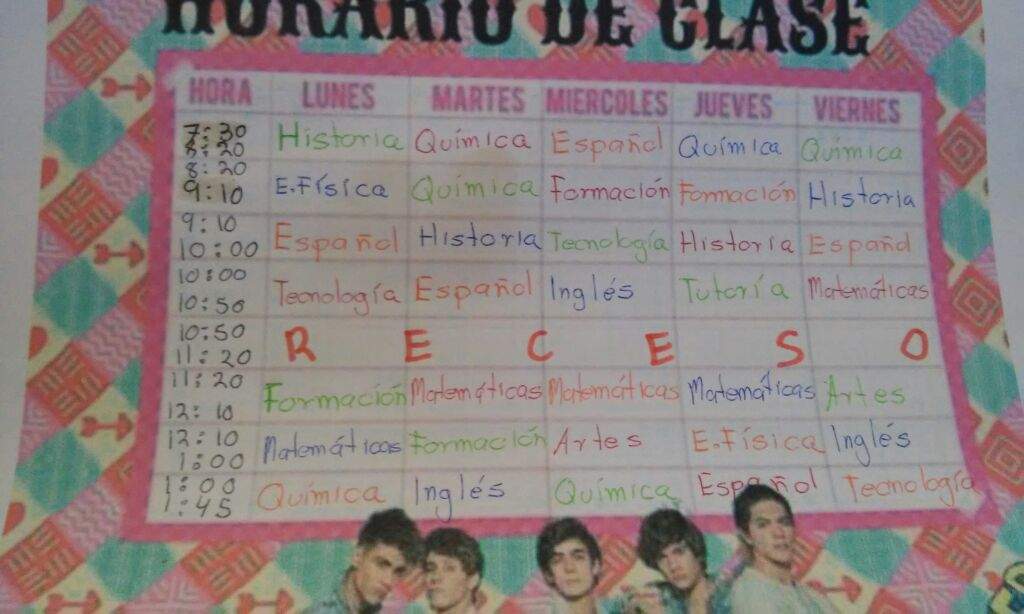 HORARIO DE CLASE
HORA LUNES MARTES MIERCOLES JUEVES VIERNES
7:30 Historia Química Español Química Química
8:20
8:20 E.Física Química Formación Formación Historia
9:10
9:10 Español Historia Tecnología Historia Español
10:00
10:00 Tecnología Español Inglés Tutoría Matemáticas
10:50
10:50 R E C E S O
11:20
11:20 Formación Matemáticas Matemáticas Matemáticas Artes
12:10
12:10 Matemáticas Formación Artes E.Física Inglés
1:00
1:00 Química Inglés Química Español Tecnología
1:45